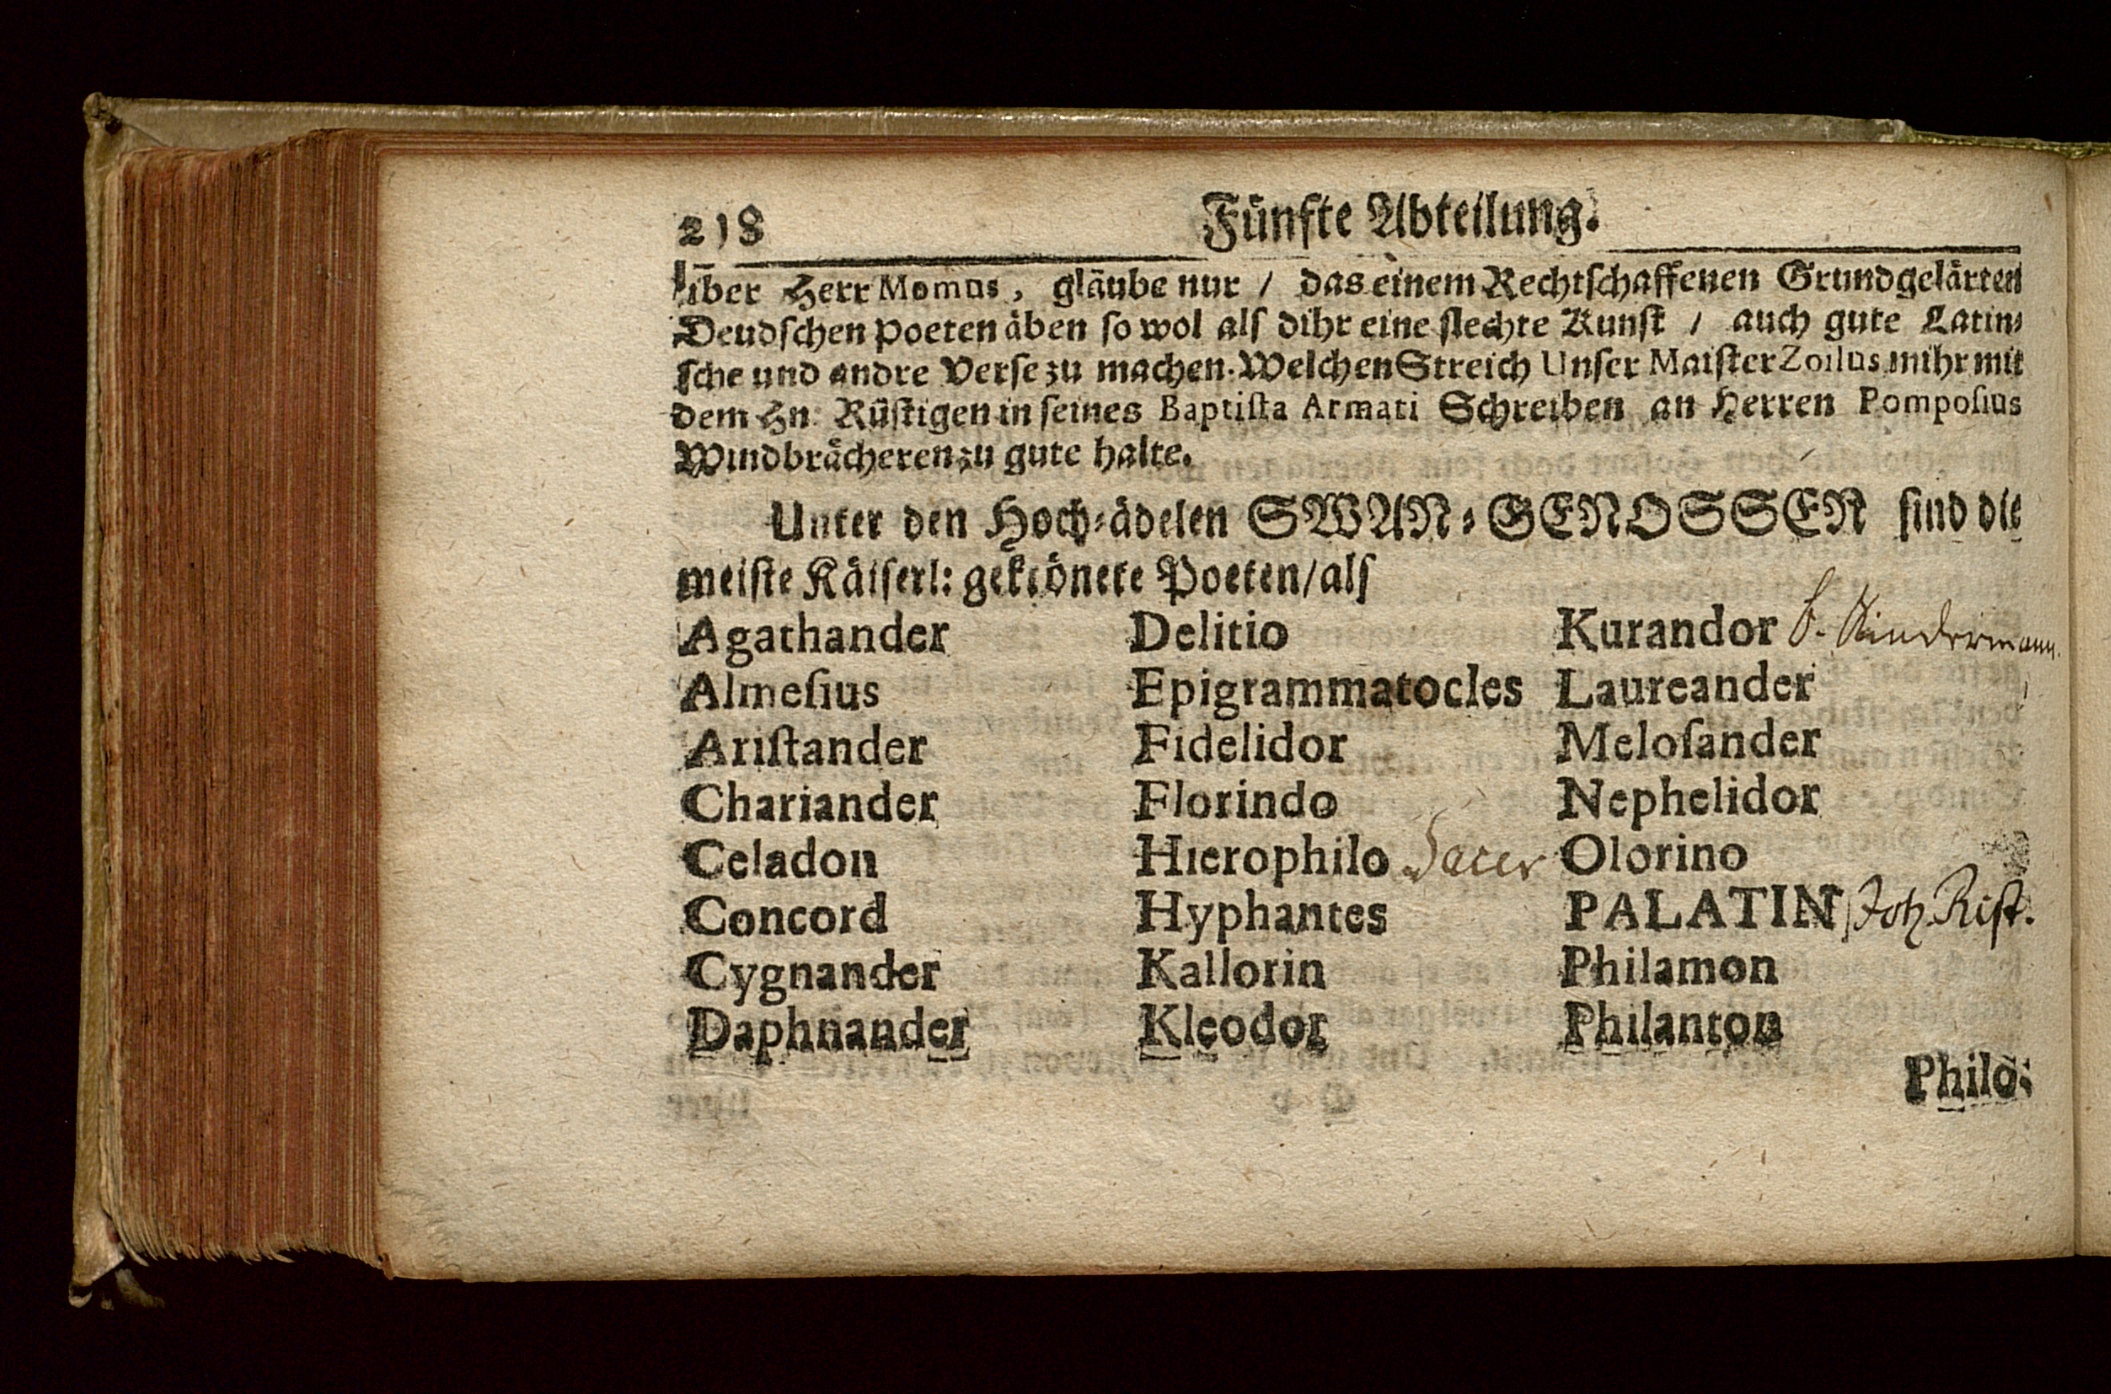 218 Fünfte Abteilung.
über Herr Momus, gläube nur / das einem Rechtschaffenen Grundgelärten
Deudschen Poeten äben so wol als dihr eine slechte Kunst / auch gute Latin-
sche und andre Verse zu machen. Welchen Streich Unser Maister Zoilus mihr mit
dem Hn. Rüstigen in seines Baptista Armati Schreiben an Herren Pomposius
Windbrächeren zu gute halte.
Unter den Hoch-ädelen SWAN-GENOSSEN sind die
meiste Käiserl: gekrönete Poeten/als
Agathander
Almeſius
Ariſtander
Chariander
Celadon
Concord
Cygnander
Daphnander
Delitio
Epigrammatocles
Fidelidor
Florindo
Hierophilo Sacer
Hyphantes
Kallorin
Kleodor
Kurandor B. Kindermann.
Laureander
Meloſander
Nephelidor
Olorino
PALATIN Joh. Rist.
Philamon
Philanton
Philo-